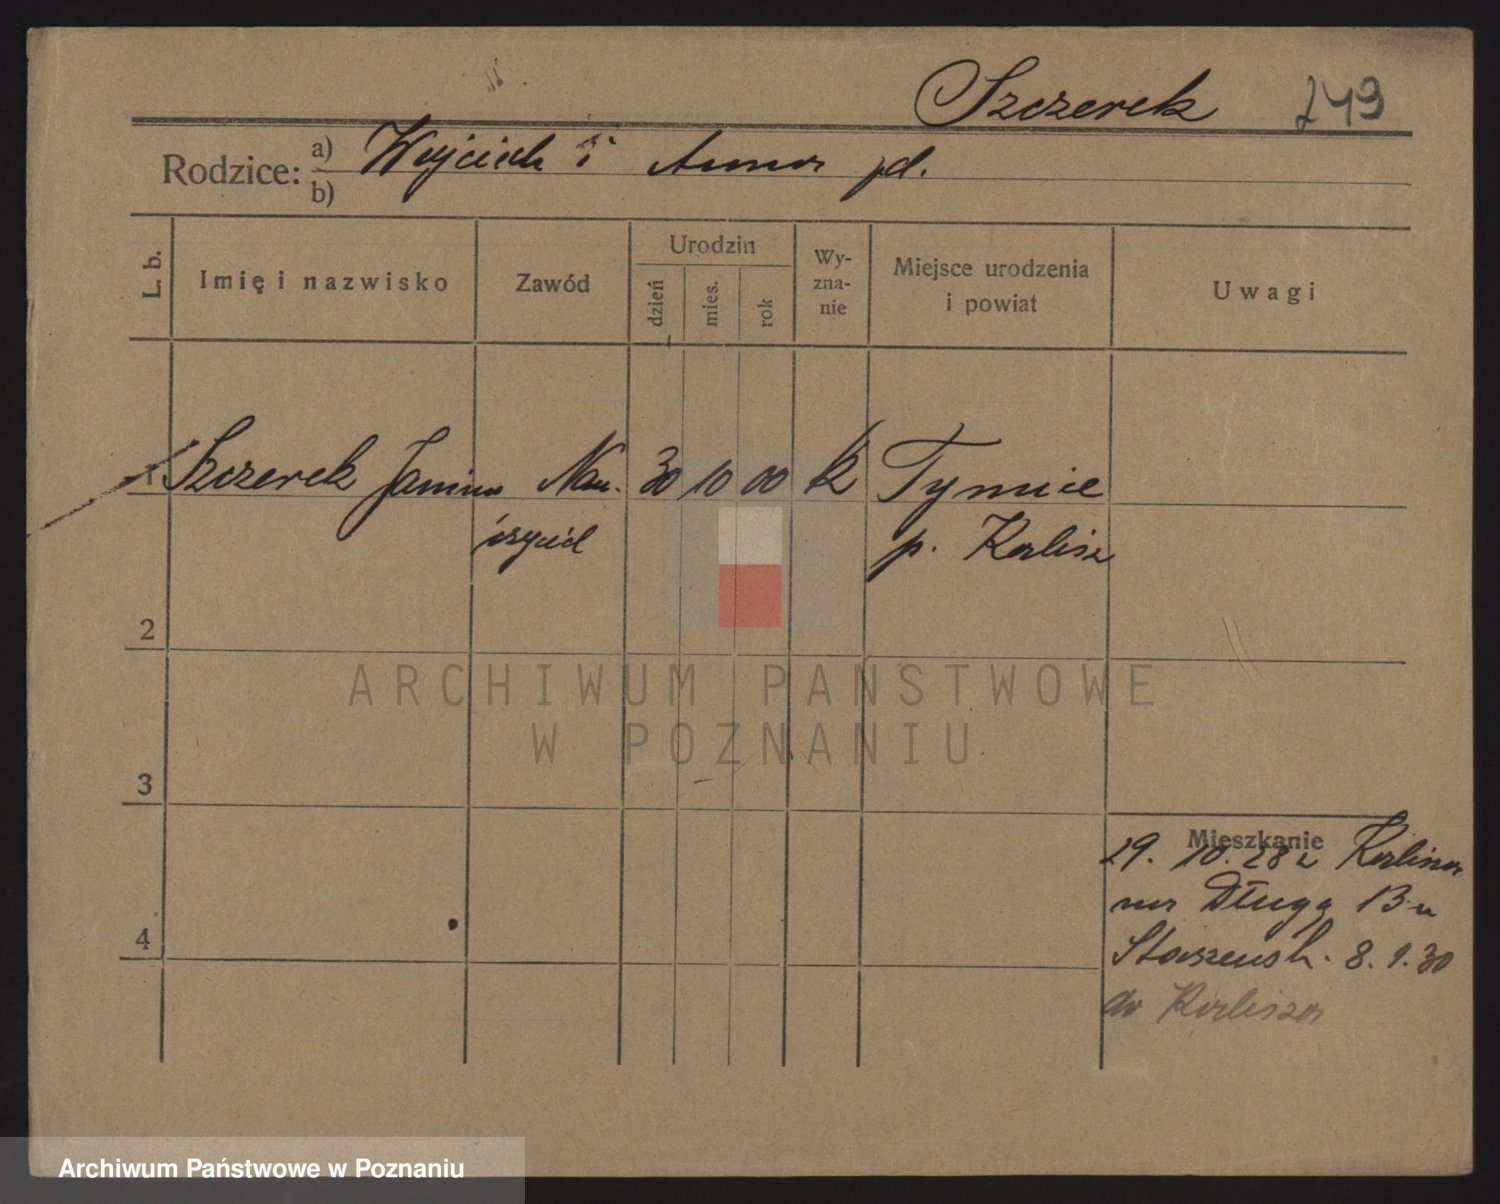 Szczerek 249
Rodzice: a) Wojciech i Anna jd.
b)
L. b. Imię i nazwisko Zawód Urodzin dzień mies. rok Wy-zna-nie Miejsce urodzenia i powiat Uwagi
1 Szczerek Janina Nau- 30 10 00 k Tymice
czyciel p. Kalisz
2
ARCHIWUM PAŃSTWOWE
W POZNANIU
3
Mieszkanie
29. 10. 28 z Kalisza
na Długą 13 u
8. 1. 30
4
do Kalisza
Archiwum Państwowe w Poznaniu